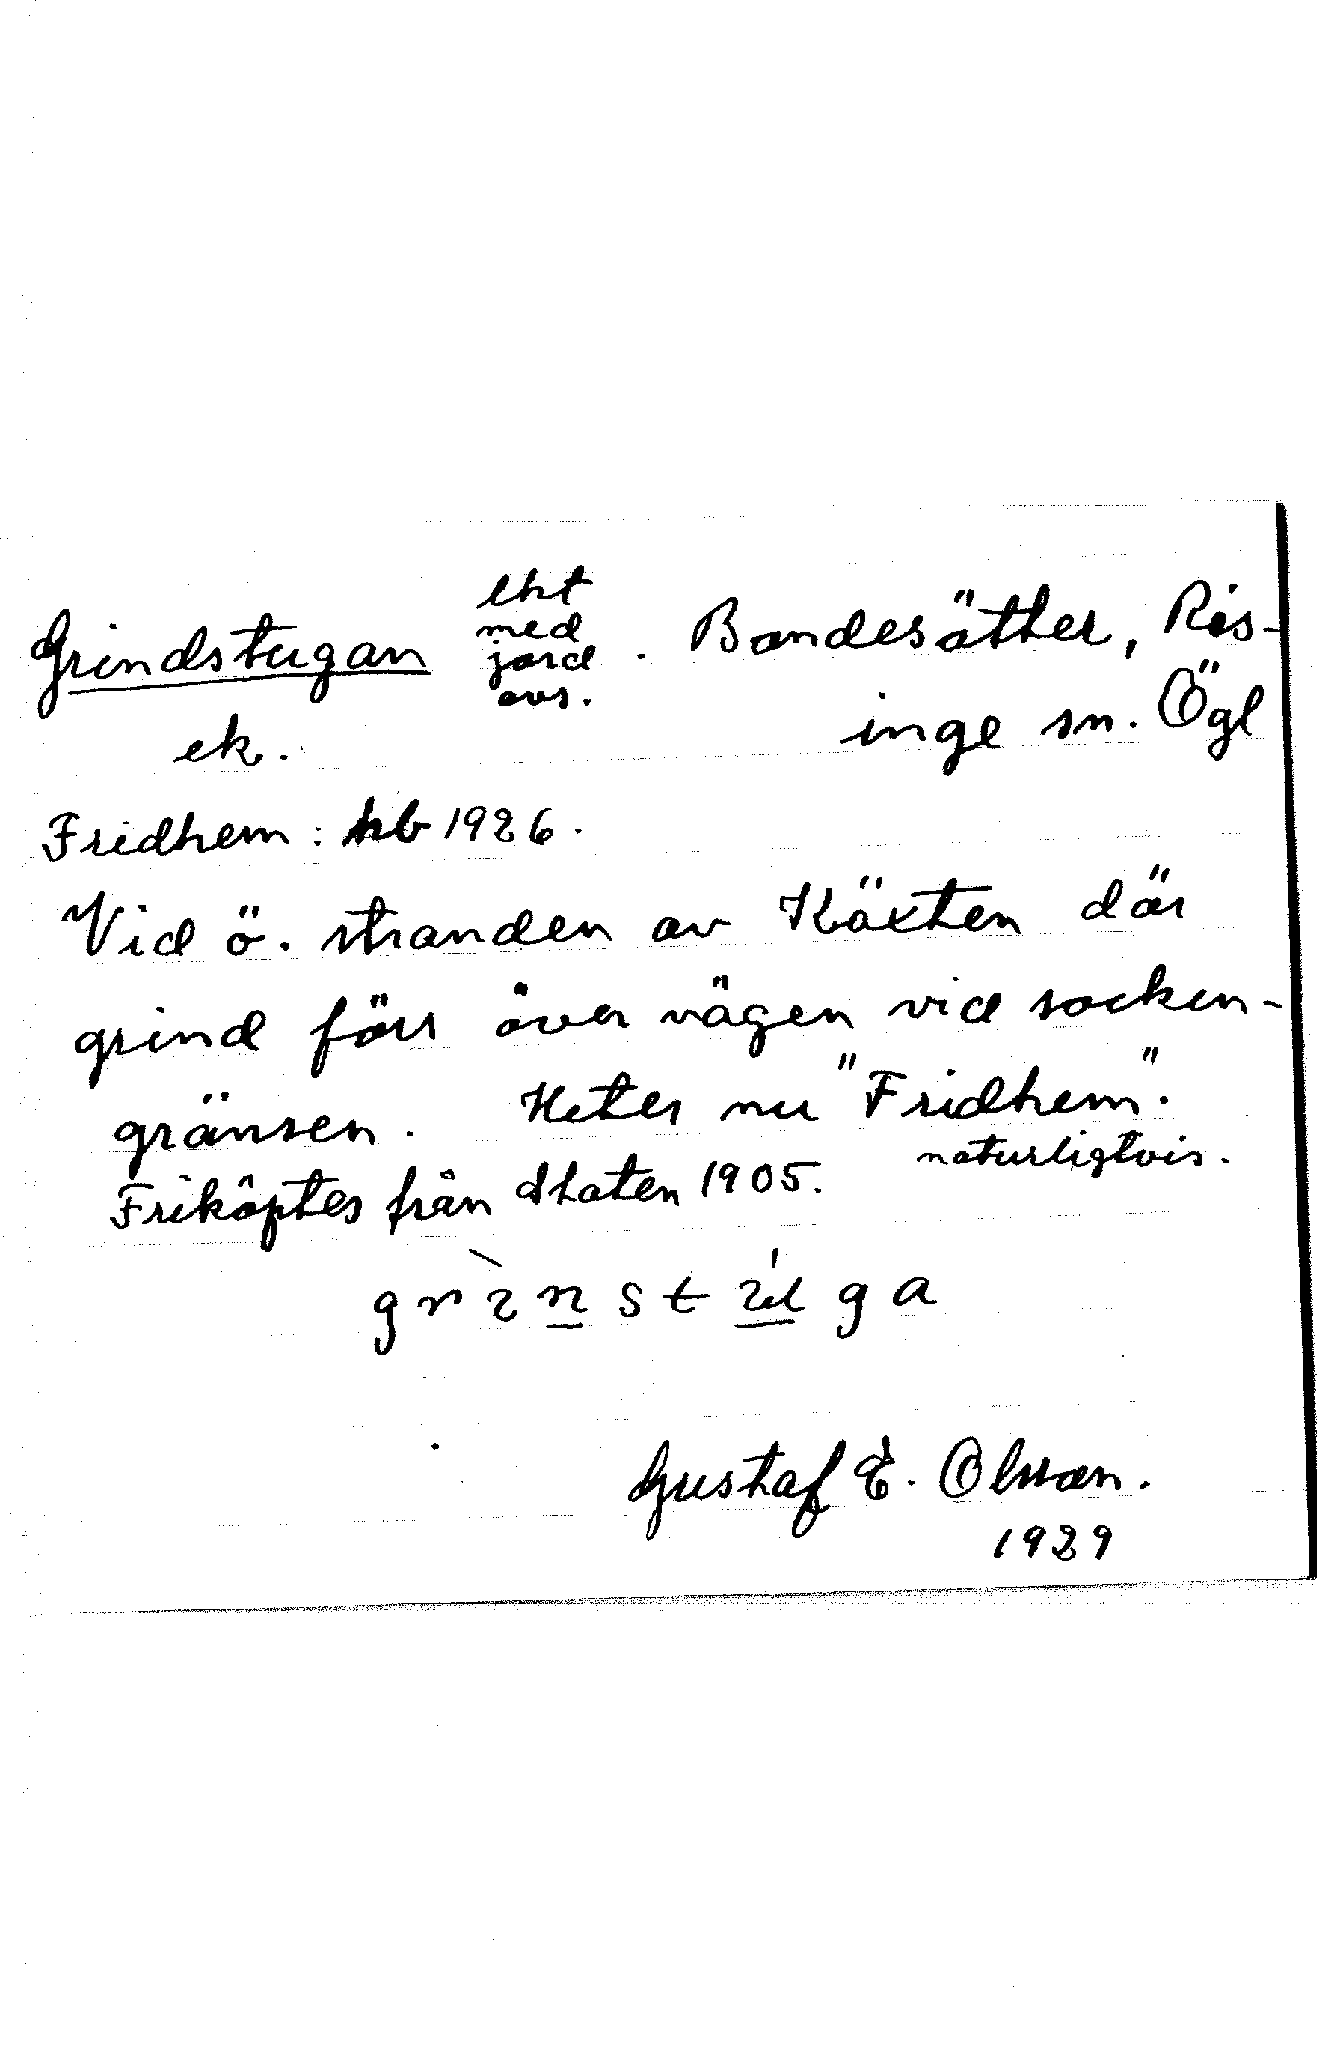 Grindstugan lht med jord avs. . Bondesätter, Ris-
ek. inge sn. Ögl
Fridhem: hb 1926.
Vid ö. stranden av Käxten där
grind förr över vägen vid socken-
gränsen. Heter nu "Fridhem".
naturligtvis.
Friköptes från Staten 1905.
Gustaf E. Olsson.
1929